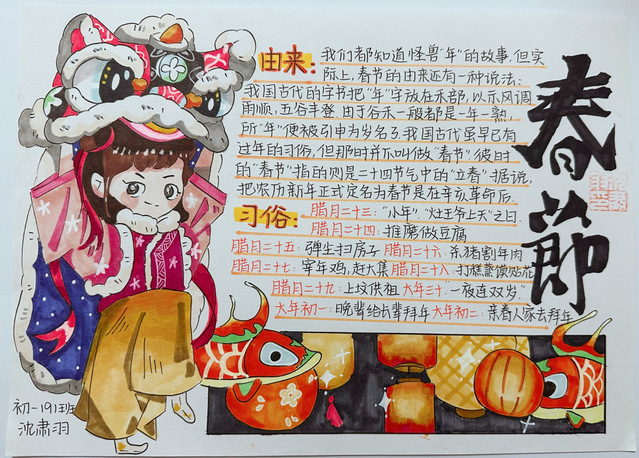 春節
由来：我们都知道怪兽"年"的故事,但实
际上,春节的由来还有一种说法:
我国古代的字书把"年"字放在禾部,以示风调
雨顺,五谷丰登.由于谷禾一般都是一年一熟,
所"年"便被引申为岁名了.我国古代虽早已有
过年的习俗,但那时并不叫做"春节".彼时
的"春节"指的则是二十四节气中的"立春".据说,
把农历新年正式定名为春节是在辛亥革命后.
习俗：腊月二十三:"小年","灶王爷上天"之日.
腊月二十四:推磨做豆腐
腊月二十五:弹尘扫房子 腊月二十六:杀猪割年肉
腊月二十七:宰年鸡,赶大集 腊月二十八:打糕蒸馍贴花
腊月二十九:上坟供祖 大年三十:一夜连双岁"
大年初一:晚辈给长辈拜年 大年初二:亲看人家去拜年
初一191班
沈肃羽